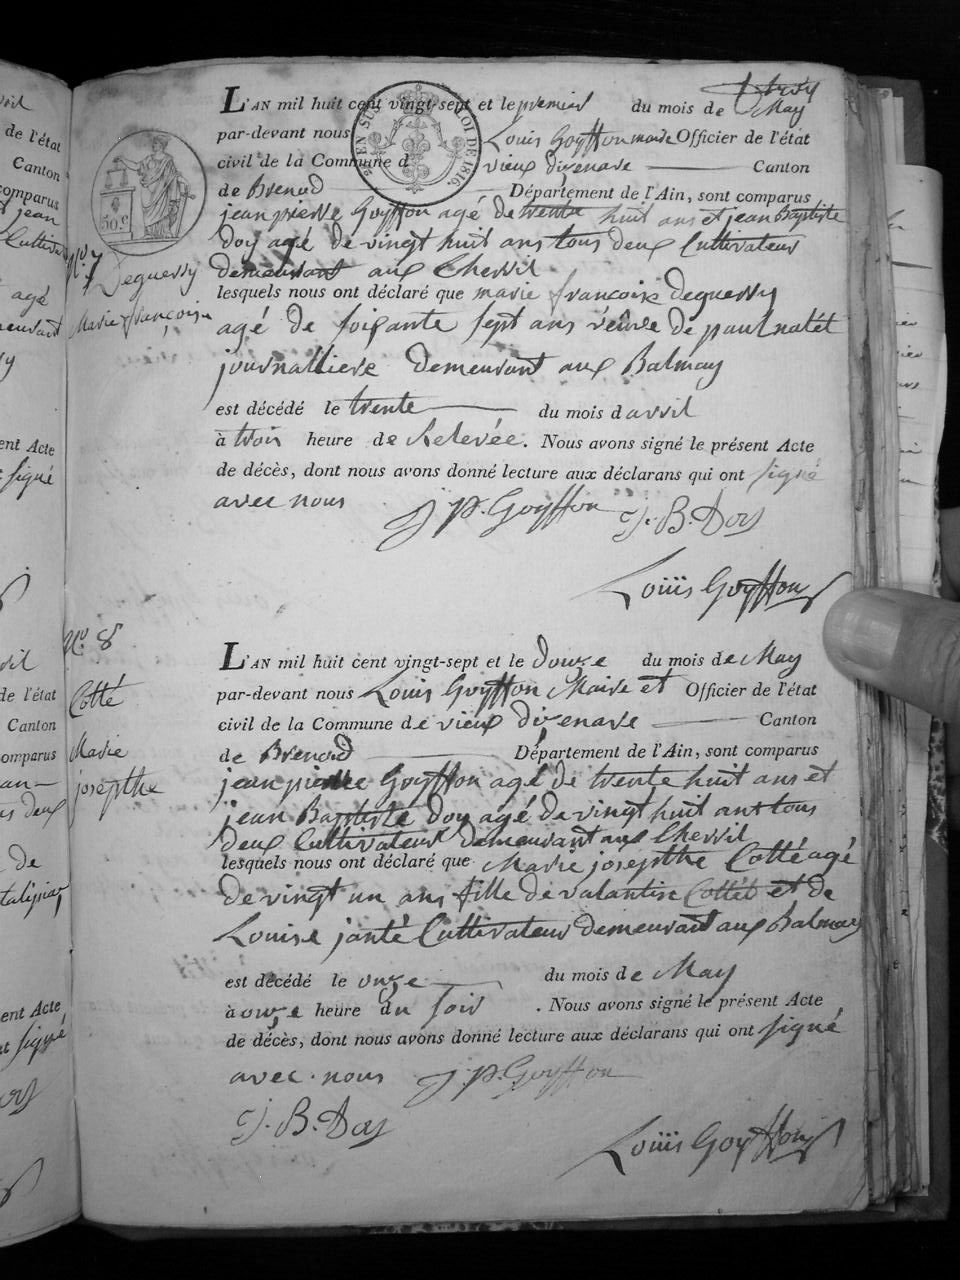 trois
L'AN mil huit cent vingt-sept et le premier du mois de May
par-devant nous Louis Goyffon maire Officier de l'état
civil de la Commune d vieux dizenave Canton
de Brenod Département de l'Ain, sont comparus
jean pierre Goyffon agé de trente huit ans et jean Baptiste
Doy agé de vingt huit ans tous deux Cultivateur
demeurant aux Chevril
lesquels nous ont déclaré que marie françoise deguerry
agé de soixante sept ans véuve de paul natét
journalliere demeurant aux Balmay
est décédé le trente du mois d avril
à trois heure de Relevée. Nous avons signé le présent Acte
de décès, dont nous avons donné lecture aux déclarans qui ont signé
avec nous J. P. Goyffon J. B. Doy
Louis Goyffon
EN SUS LOI DE 1816.
50 c
N.º 7
Deguerry
Marie françoise
N.º 8
Cotté
Marie
josepthe
L'AN mil huit cent vingt-sept et le douze du mois de May
par-devant nous Louis Goyffon Maire et Officier de l'état
civil de la Commune de vieux dizenave Canton
de Brenod Département de l'Ain, sont comparus
jean pierre Goyffon agé de trente huit ans et
jean Baptiste Doy agé de vingt huit ans tous
deux Cultivateur demeurant aux Chevril
lesquels nous ont déclaré que Marie josepthe Cotté agé
de vingt un ans fille de valantin Cottét et de
Louise janté Cultivateur demeurant aux Balmay
est décédé le onze du mois de May
à onze heure du soir . Nous avons signé le présent Acte
de décès, dont nous avons donné lecture aux déclarans qui ont signé
avec nous J. P. Goyffon
J. B. Doy
Louis Goyffon